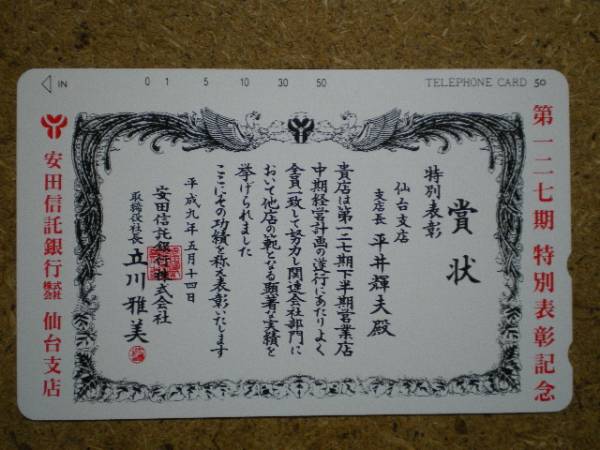 IN 0 1 5 10 30 50 TELEPHONE CARD 50
第一二七期 特別表彰記念
賞状
特別表彰
仙台支店
支店長 平井輝夫殿
貴店は第一二七期下半期営業店
中期経営計画の遂行にあたりよく
全員一致して努力し関連会社部門に
おいて他店の範となる顕著な実績を
挙げられました
ここにその功績を称え表彰いたします
平成九年五月十四日
安田信託銀行株式会社
取締役社長 立川雅美
安田信託銀行株式会社 仙台支店